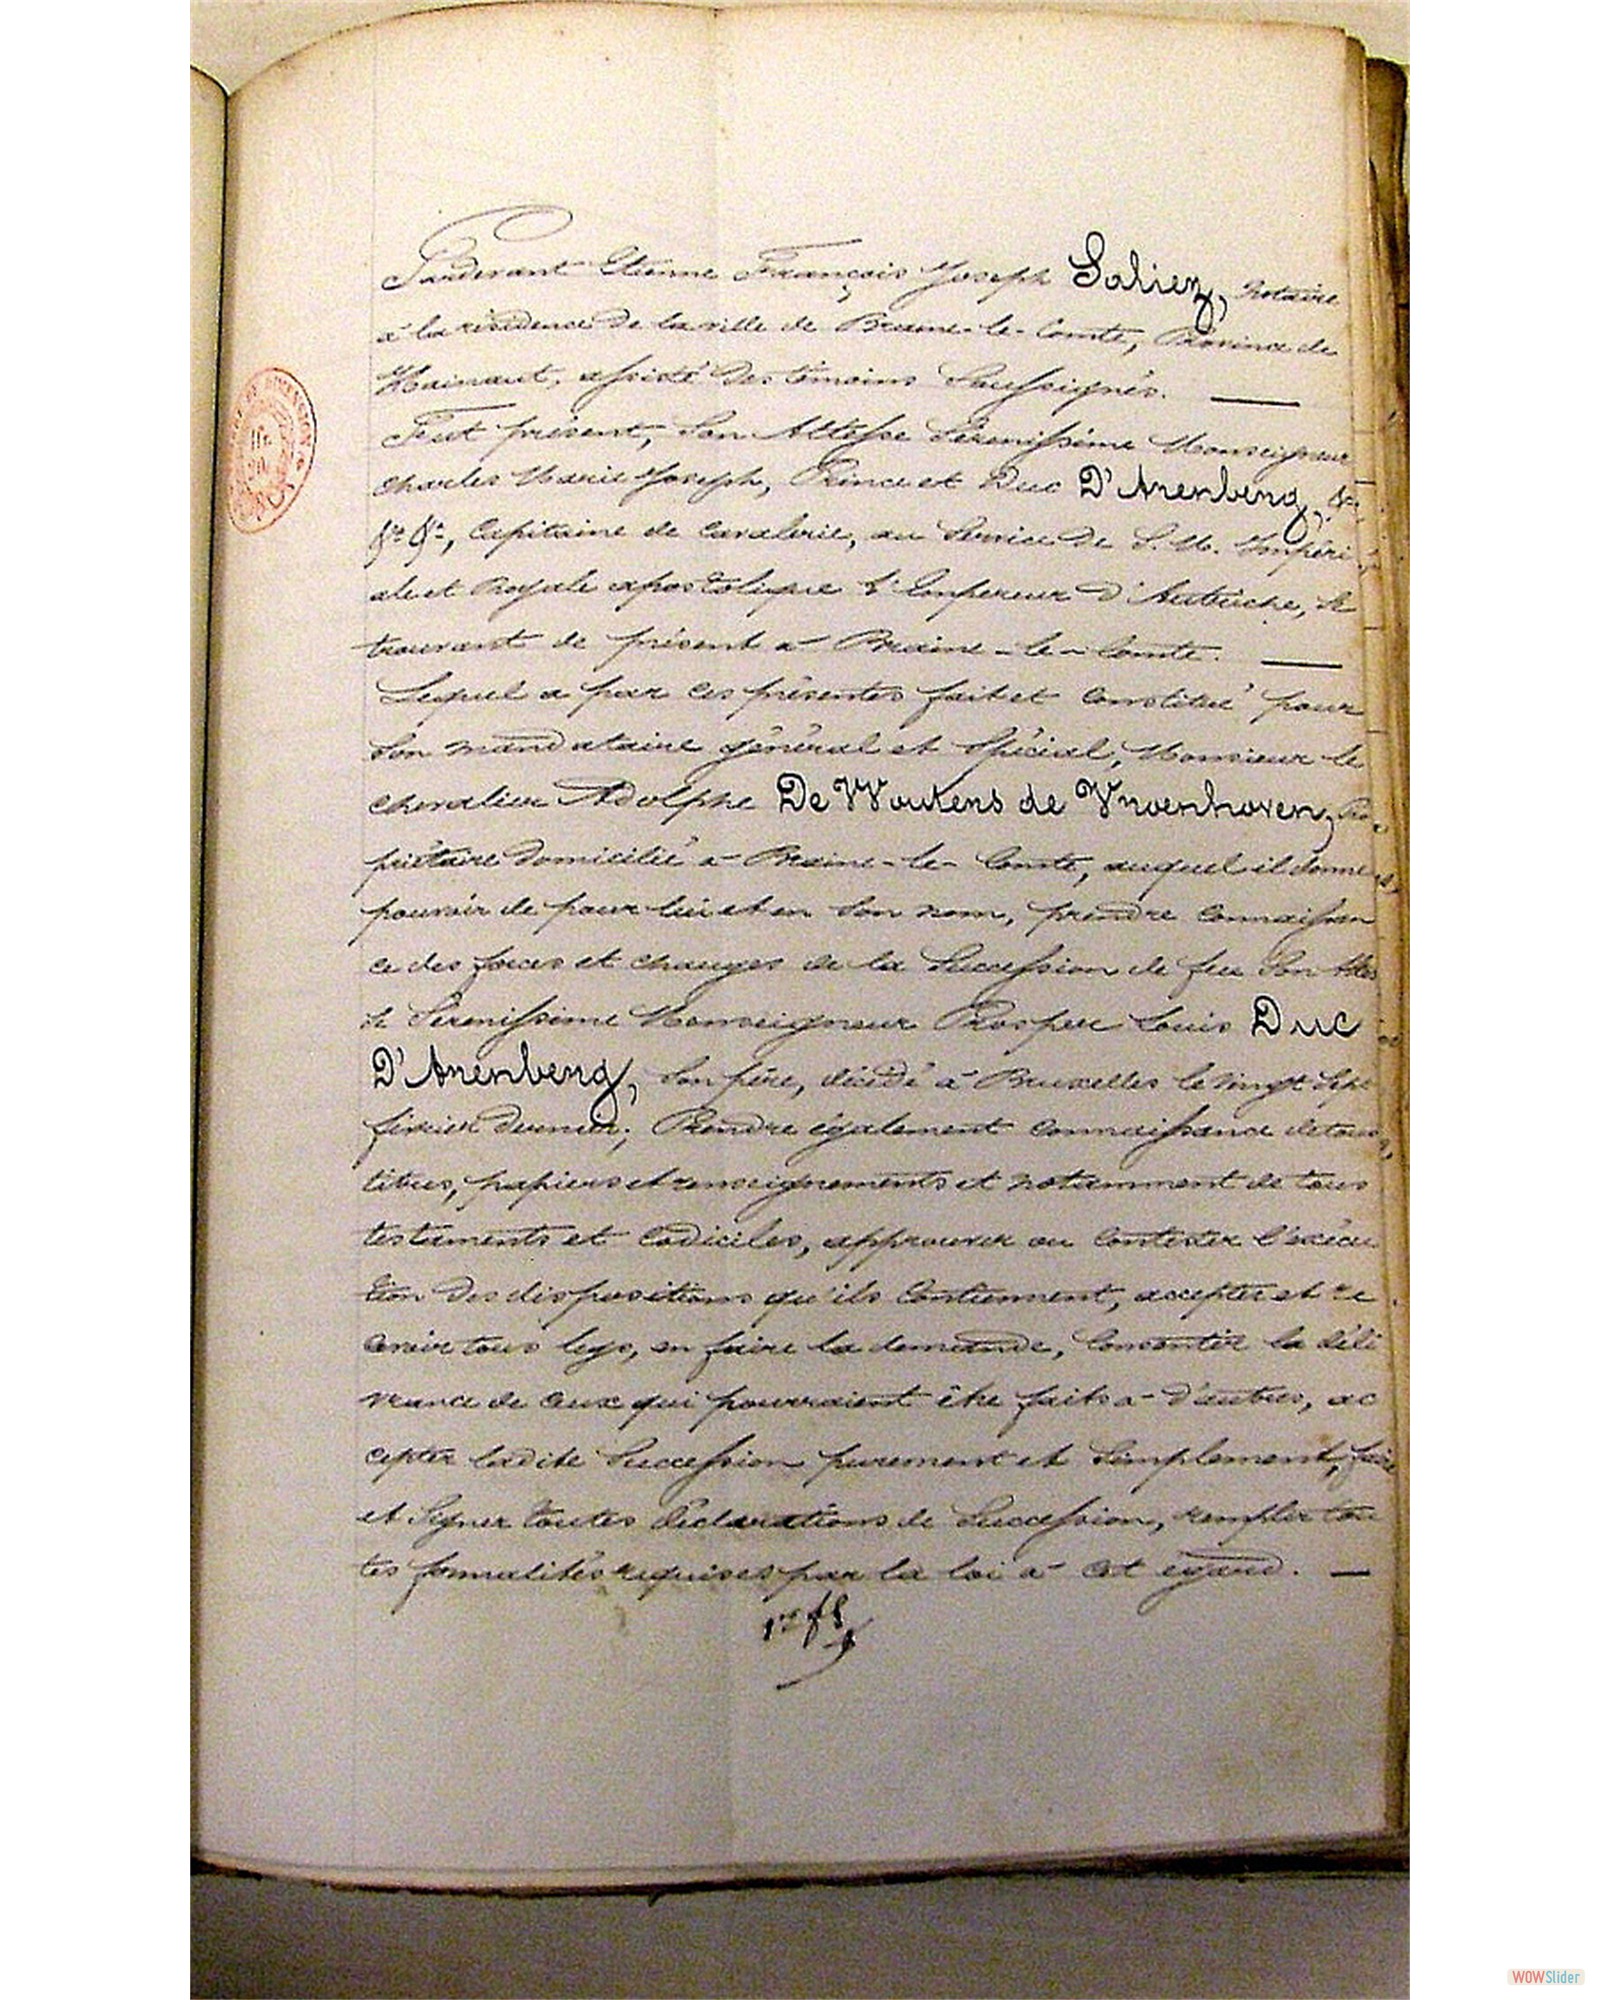 Pardevant Etienne François Joseph Saliez, Notaire
à la résidence de la ville de Braine-le-Comte, Province de
Hainaut, assisté des témoins Soussignés.
Fut présent, Son Altesse Sérénissime Monseigneur
Charles Marie Joseph, Prince et Duc D'Arenberg, &a
&a &a, Capitaine de Cavalerie, au Service de S. M. Impéri
ale et Royale apostolique l'Empereur d'Autriche, se
trouvant de présent à Braine-le-Comte.
Lequel a par ces présentes fait et constitué pour
Son mandataire général et Spécial, Monsieur le
chevalier Adolphe De Wouters de Vroenhoven, Pro
priétaire domicilié à Braine-le-Comte, auquel il donne
pouvoir de pour lui et en Son nom, prendre Connaissan
ce des forces et charges de la Succession de feu Son Altes
se Serenissime Monseigneur Prosper Louis Duc
D'Arenberg, Son père, décédé à Bruxelles le vingt Sept
février dernier; Prendre également Connaissance de tous
titres, papiers et renseignements et notamment de tous
testaments et Codiciles, approuver ou Contester l'exécu
tion des dispositions qu'ils Contiennent, accepter et re
cevoir tous legs, en faire la demande, Consentir la déli
vrance de ceux qui pourraient être faits à d'autres, ac
cepter ladite Succession purement et Simplement, faire
et Signer toutes Déclarations de Succession, remplir tou
tes formalités requises par la loi à cet égard.
WOWSlider